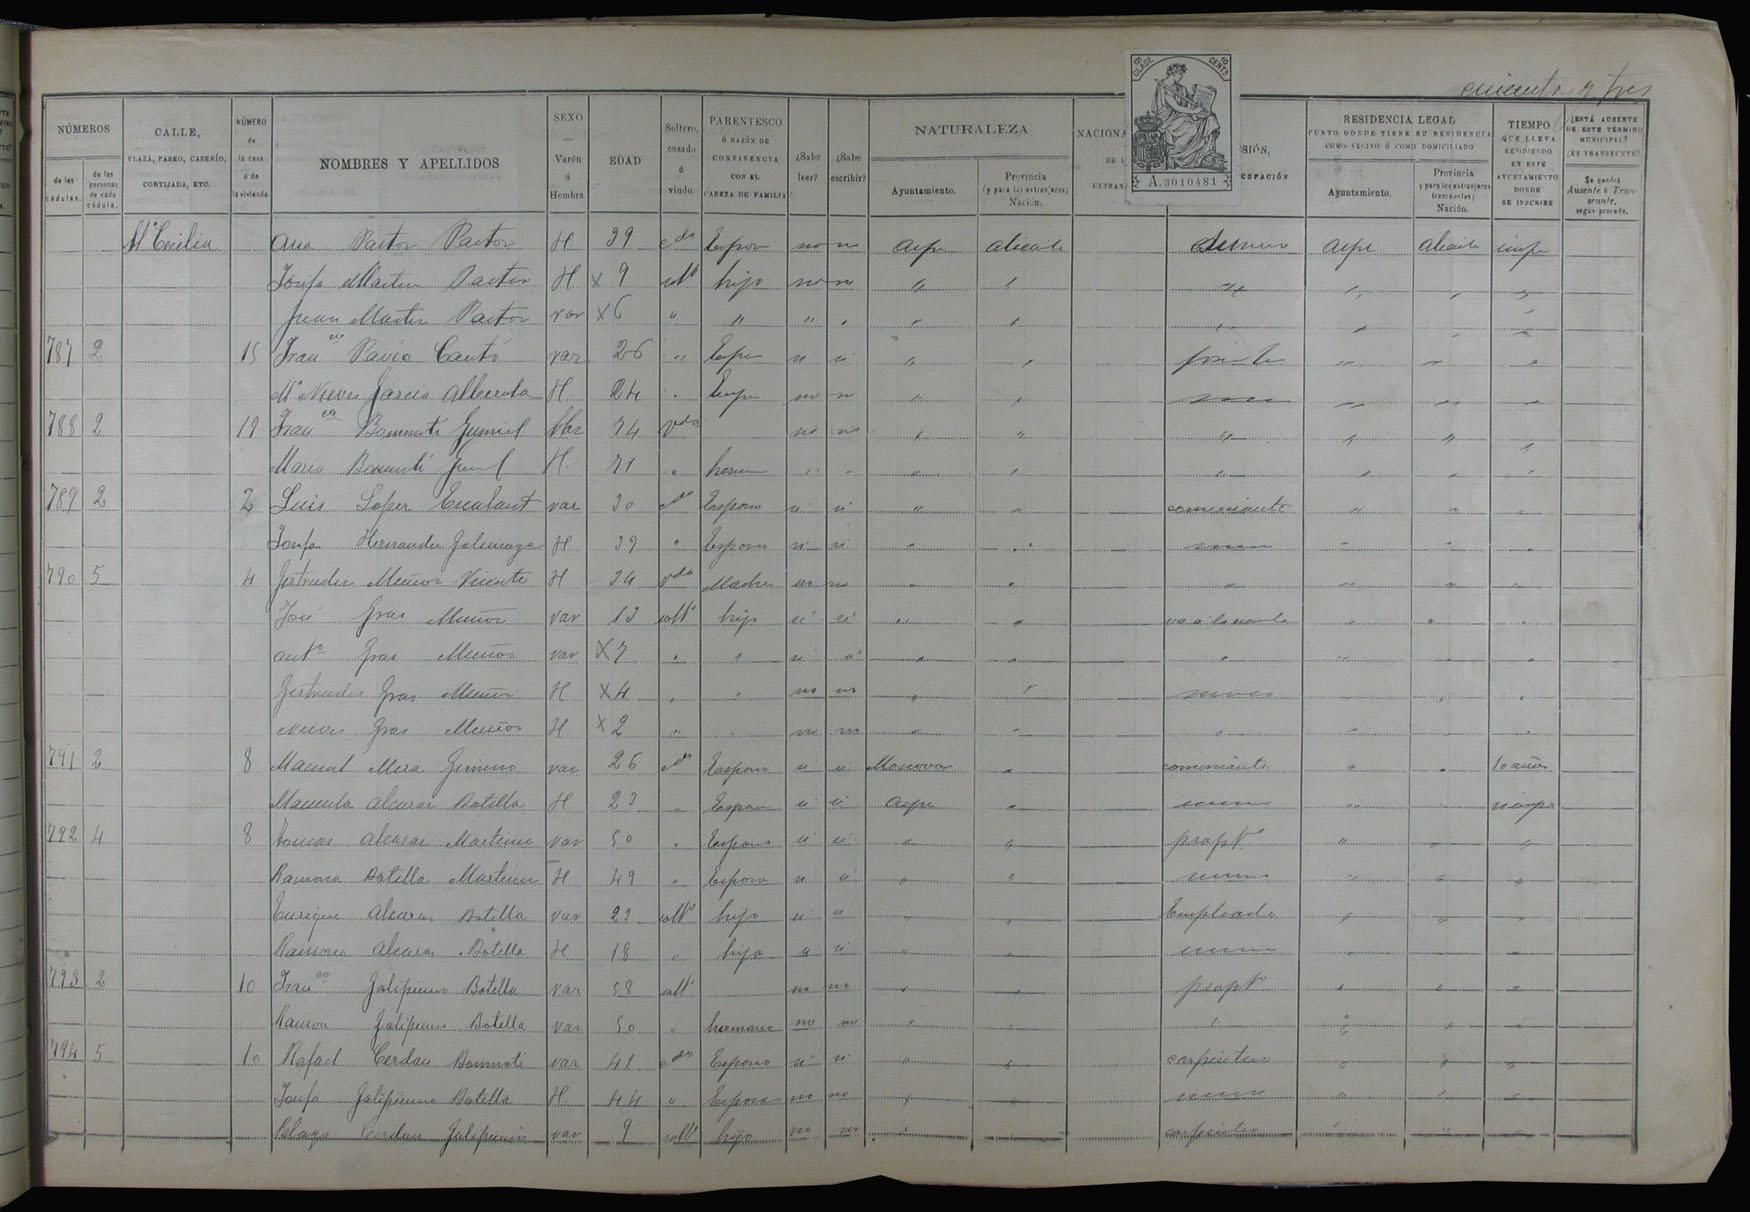 cincuenta y tres
8ª CLASE 10 CENTS
A.3010481
NÚMEROS
de las cédulas.
de las personas de cada cédula.
CALLE,
PLAZA, PASEO, CASERÍO,
CORTIJADA, ETC.
NÚMERO
de la casa ó de la vivienda.
NOMBRES Y APELLIDOS
SEXO
Varón ó Hembra
EDAD
Soltero, casado ó viudo.
PARENTESCO
Ó RAZÓN DE CONVIVENCIA CON EL CABEZA DE FAMILIA
¿Sabe leer?
¿Sabe escribir?
NATURALEZA
Ayuntamiento.
Provincia (y para los extranjeros) Nación.
NACIONA
EXTRAN
SIÓN,
CUPACIÓN
RESIDENCIA LEGAL
PUNTO DONDE TIENE SU RESIDENCIA COMO VECINO Ó COMO DOMICILIADO
Ayuntamiento.
Provincia y para los extranjeros transeuntes) Nación.
TIEMPO
QUE LLEVA RESIDIENDO EN ESTE AYUNTAMIENTO DONDE SE INSCRIBE
¿ESTÁ AUSENTE DE ESTE TÉRMINO MUNICIPAL? ¿ES TRANSEUNTE?
Se pondrá Ausente ó Transeunte, según proceda.
Stª Cecilia Ana Pastor Pastor H 39 cda Esposa no no Aspe Alicante Aspe Alicante
Josefa Martin Pastor H × 9 soltª hija no no
Juan Martin Pastor var × 6 " " " "
787 2 15 Franco Pavia Cantó var 26 " si si
Mª Nieves Garcia Alberola H 24 " no no
788 2 19 Franco Bonmati Gumiel 74 Vdo no no
Maria Bonmati H 71 "
789 2 2 Luis Lopez Escalant var 30 cdo Esposo si si comerciante
Josefa Hernandez Galinsoga H 39 " Esposa si si
790 5 4 Gertrudis Muñoz Vicente H 34 vda Madre no no
José Gras Muñoz var 13 soltº hijo si si va a la escuela
Antº Gras Muñoz var × 7 " " si si
Gertrudis Gras Muñoz H × 4 " " no no
Nieves Gras Muñoz H × 2 " " no no
791 2 8 Manuel Mira Gimeno var 26 cdo Esposo si si Monovar comerciante 10 años
Manuela Alcaraz Botella H 23 " Esposa si si Aspe
792 4 8 Tomas Alcaraz Martinez var 50 " Esposo si si propº
Ramona Botella Martinez H 49 " Esposa si si
Enrique Alcaraz Botella var 23 soltº hijo si si Empleado
Ramona Alcaraz Botella H 18 " hija si si
793 2 10 Franco Galipienso Botella var 58 soltº no no propº
Ramon Galipienso Botella var 50 " hermano no no
794 5 10 Rafael Cerdan Bonmati var 41 cdo Esposo si si carpintero
Josefa Galipienso Botella H 44 " Esposa no no
Pelayo Cerdan Galipienso var 9 soltº hijo no no carpintero